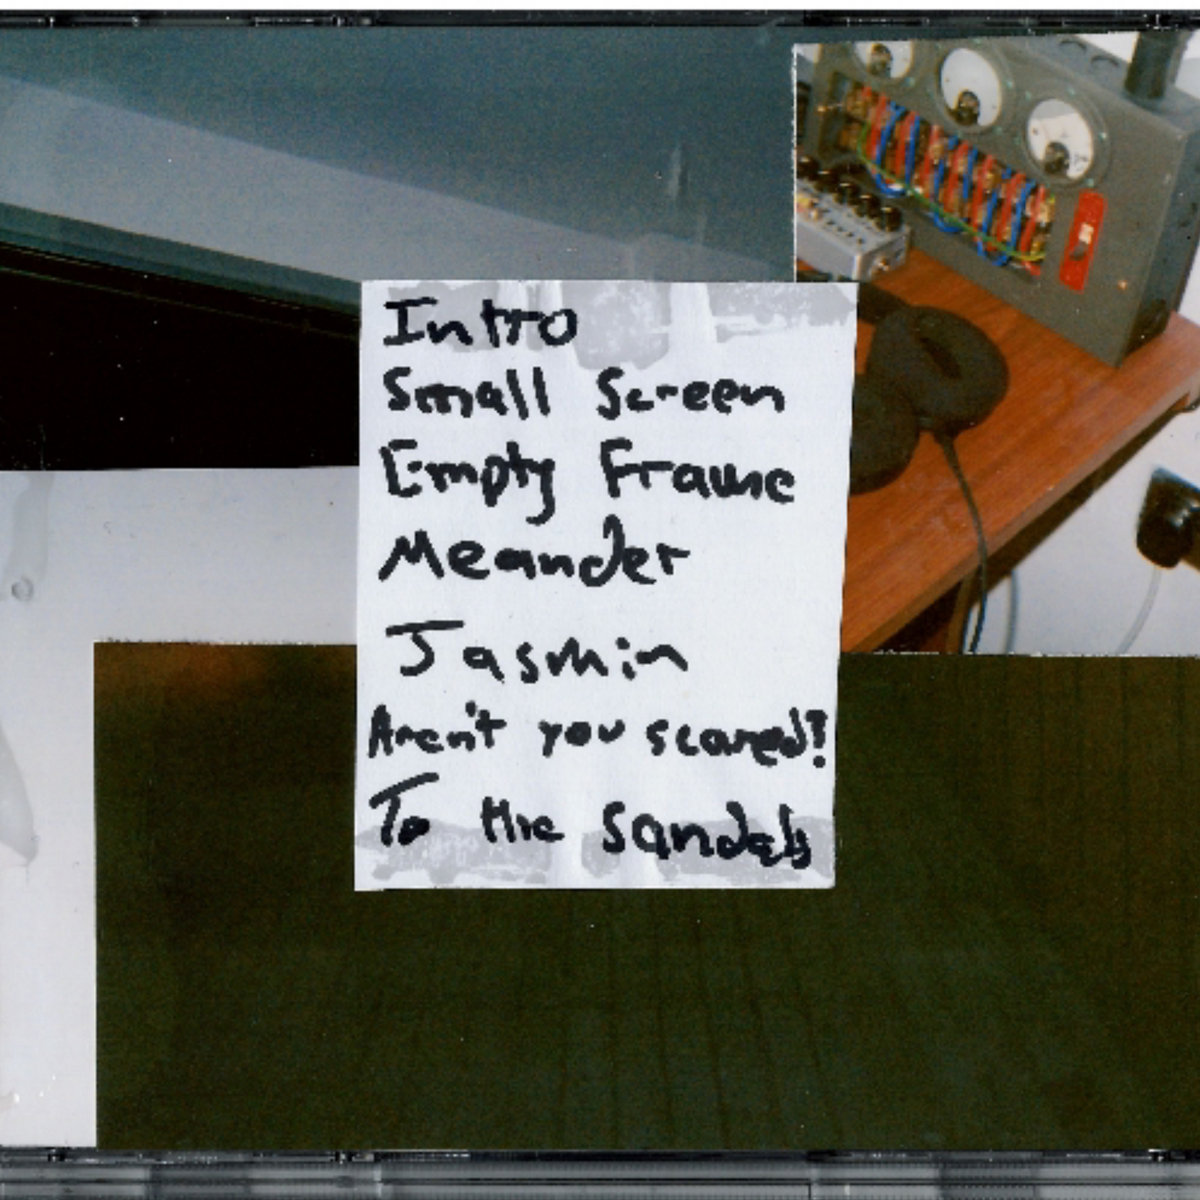 Intro
Small Screen
Empty Frame
Meander
Jasmin
Aren't you scared?
To the Sandals